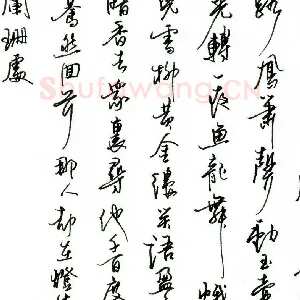 路鳳簫聲動玉壺
光轉一夜魚龍舞蛾
兒雪柳黃金縷笑語盈
暗香去眾裏尋他千百度
驀然回首那人却在燈火
闌珊處
Shufawang.CN